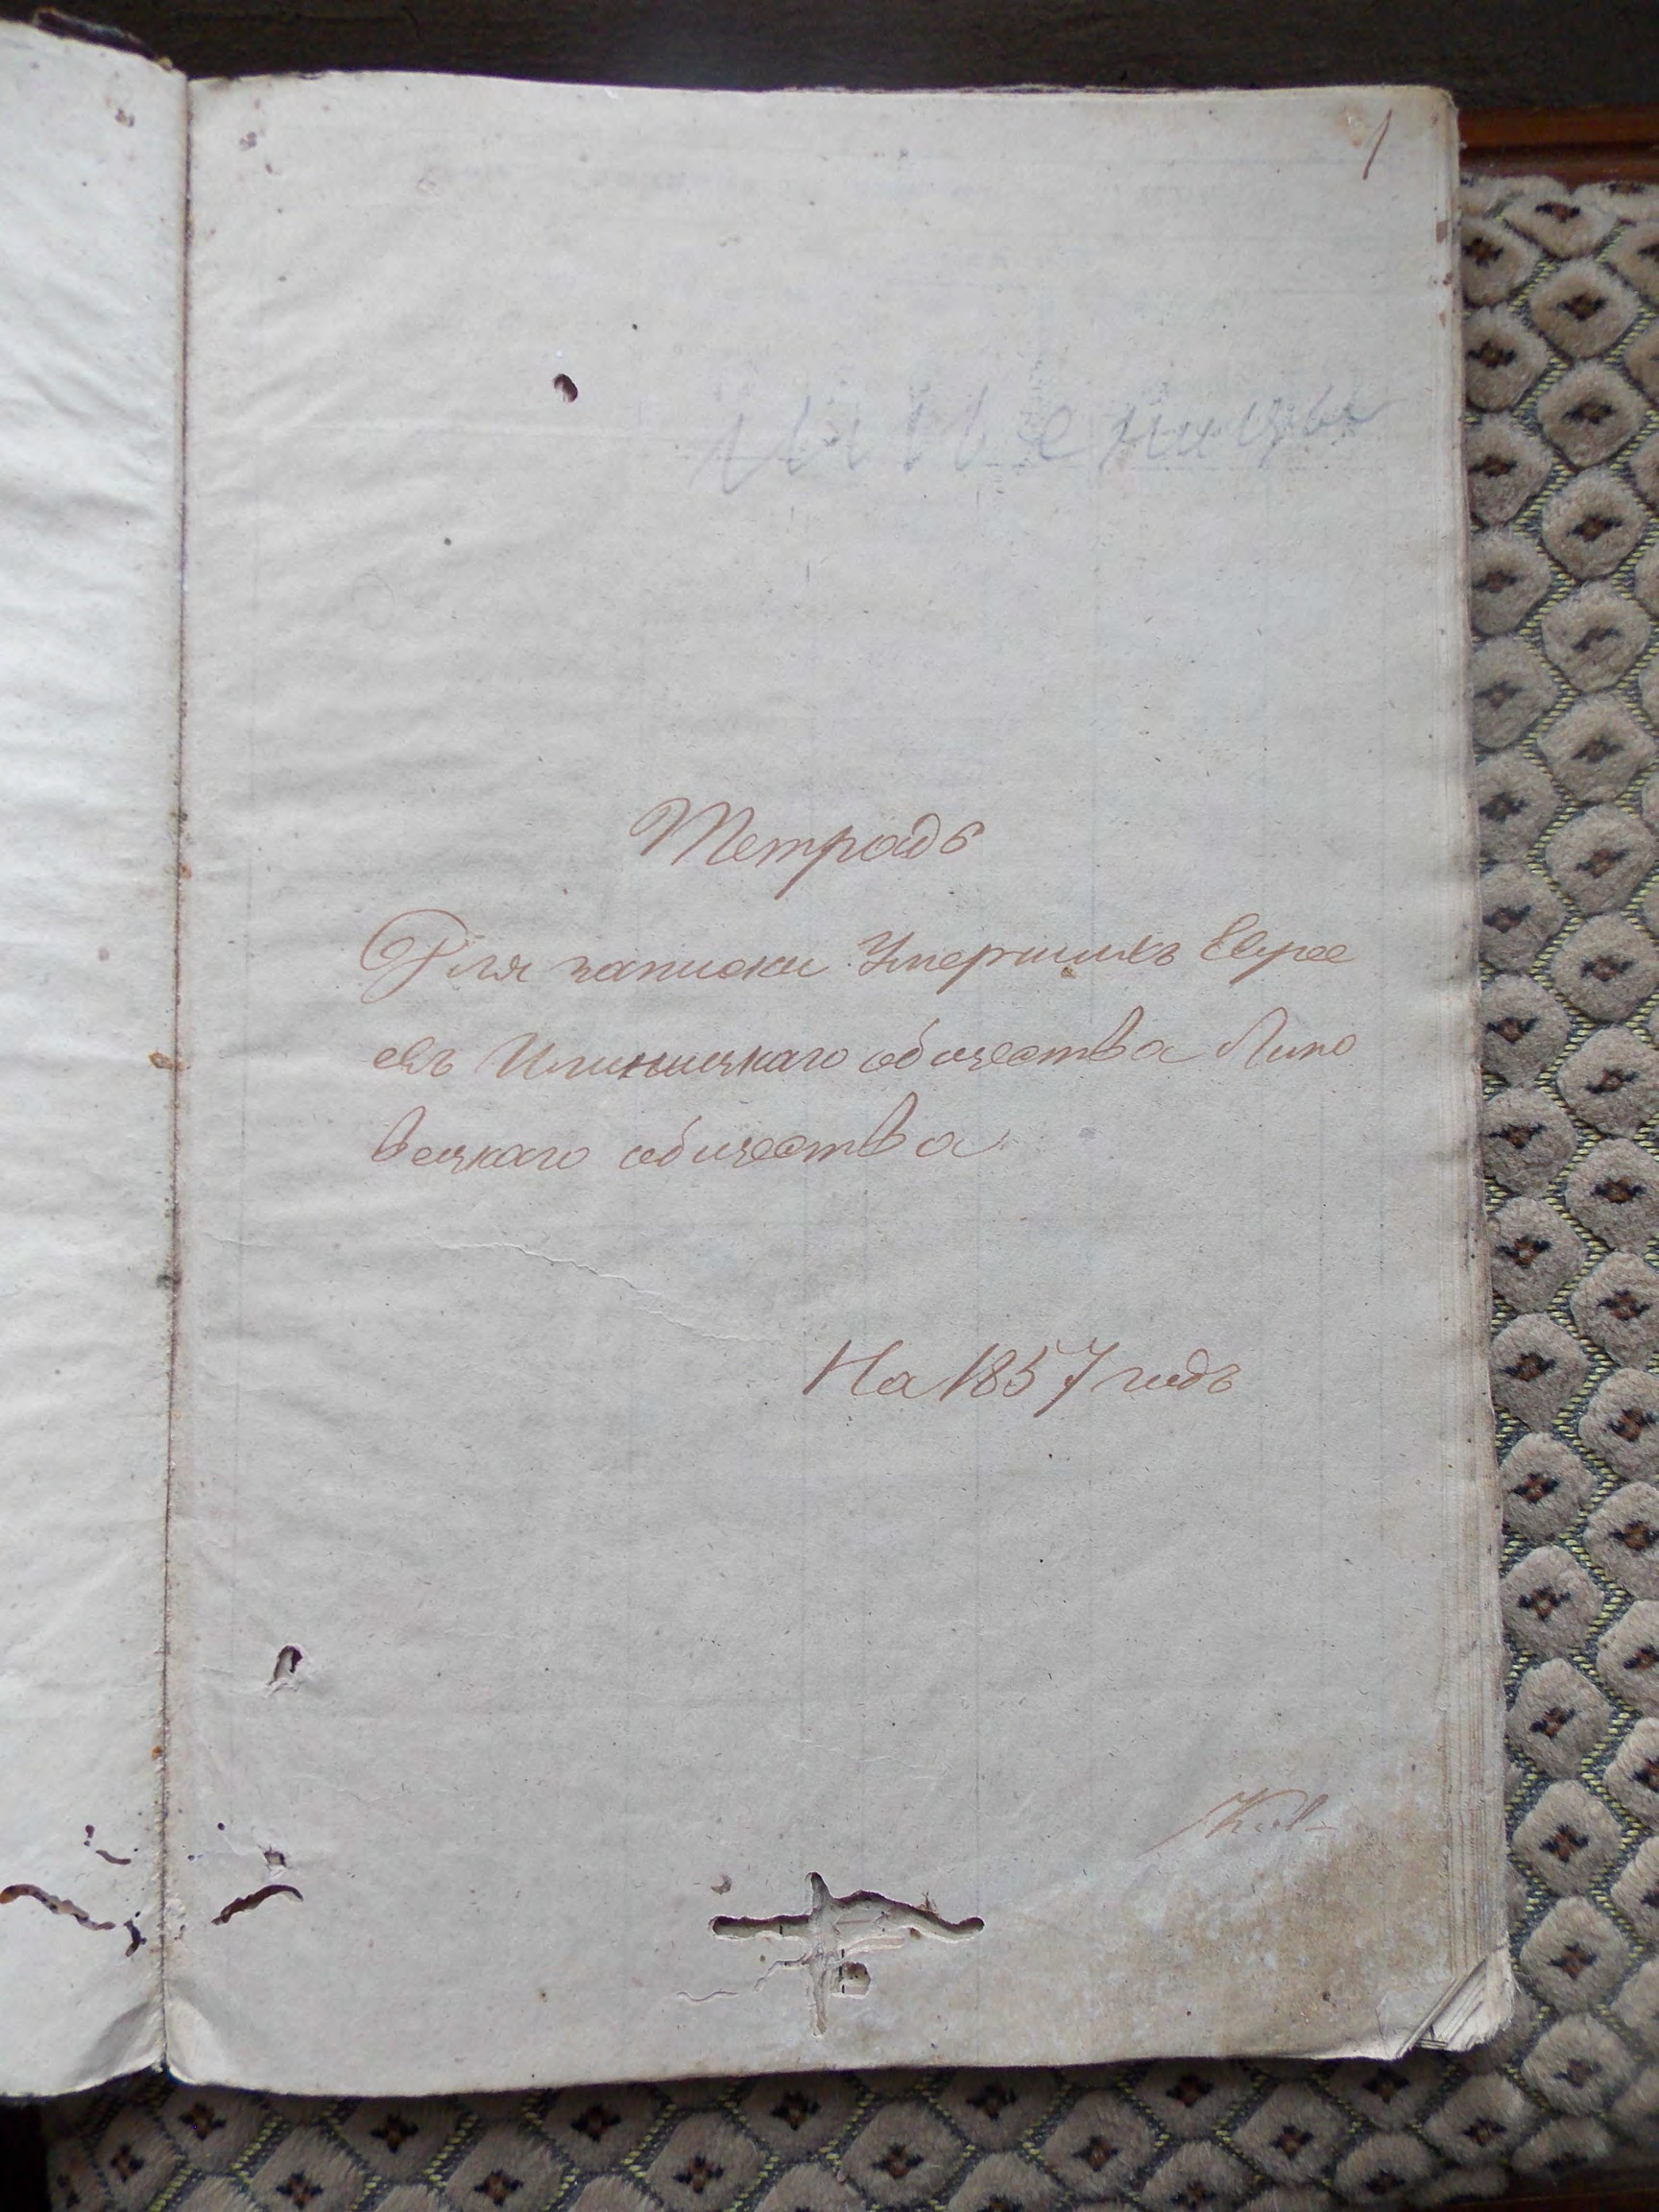 1
Тетрадь
Для записки Умершихъ Еврее
евъ Илиницкаго общества Липо
вецкаго общества
На 1857 годъ